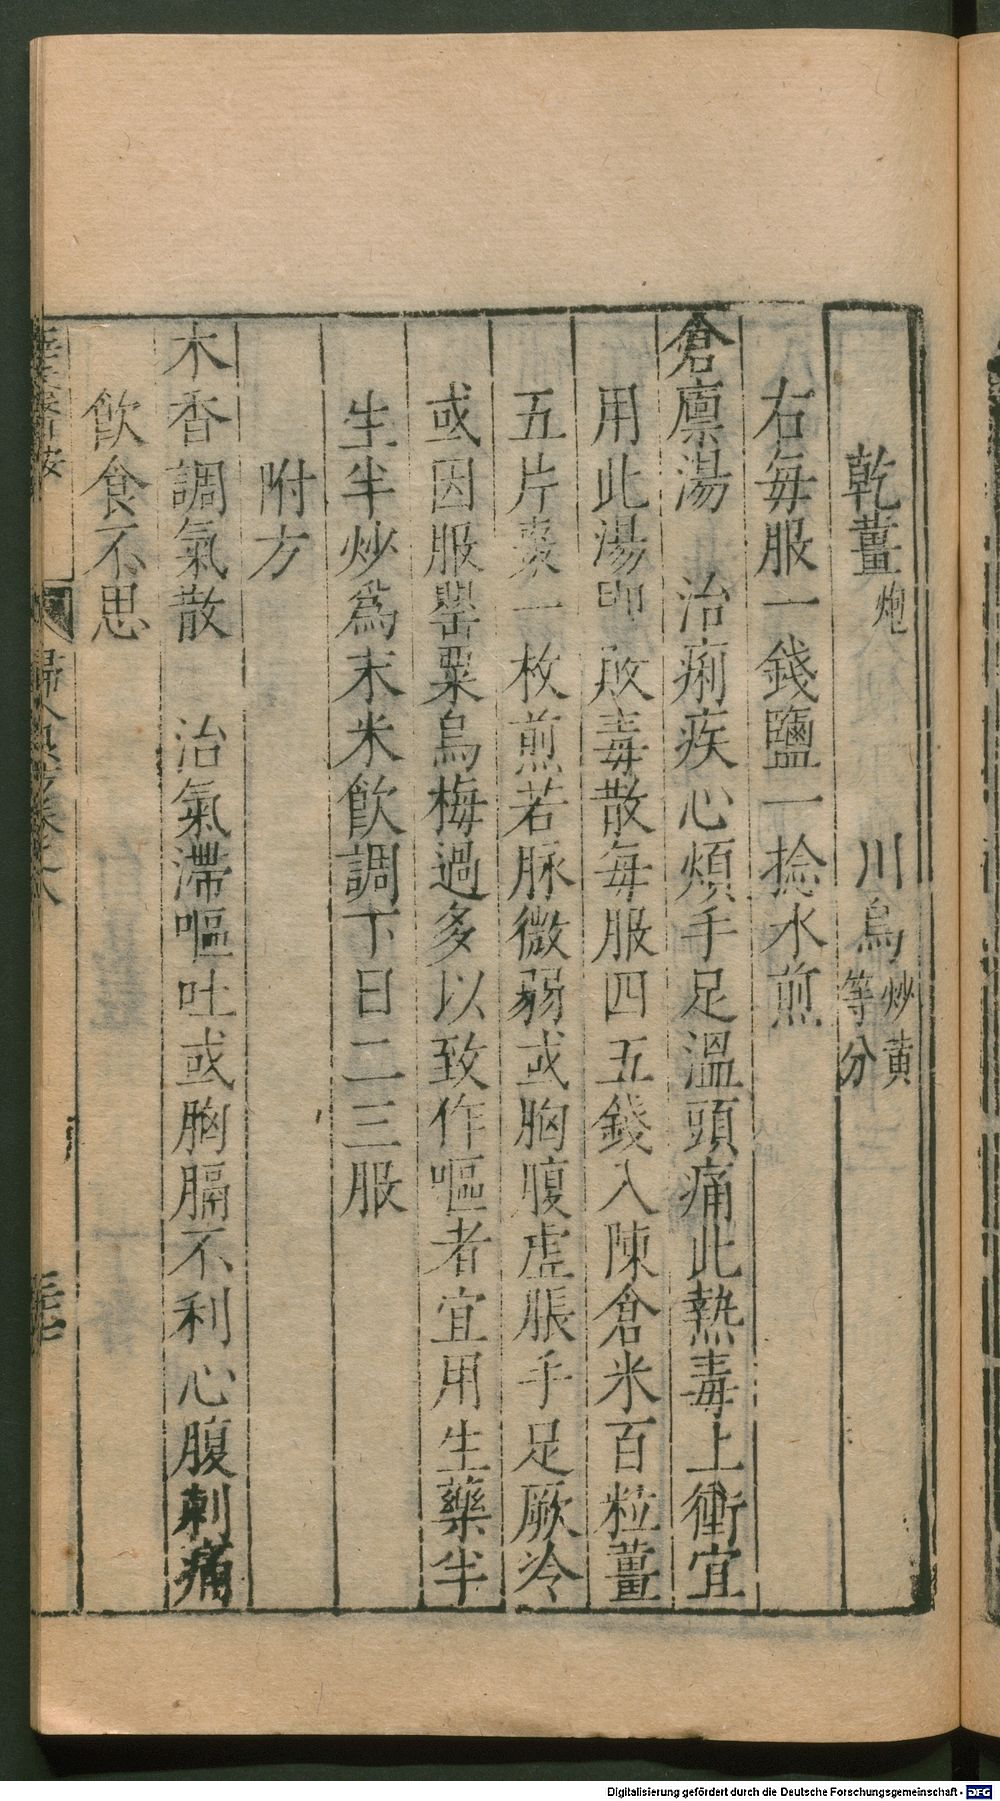 乾薑炮　川烏炒黄等分
右每服一錢鹽一捻水煎
倉廪湯　治痢疾心煩手足溫頭痛此熱毒上衝宜
用此湯即敗毒散每服四五錢入陳倉米百粒薑
五片棗一枚煎若脉微弱或胸腹虛脹手足厥冷
或因服罌粟烏梅過多以致作嘔者宜用生藥半
生半炒爲末米飲調下日二三服
附方
木香調氣散　治氣滯嘔吐或胸膈不利心腹刺痛
飲食不思
婦人良方卷之八
Digitalisierung gefördert durch die Deutsche Forschungsgemeinschaft - DFG